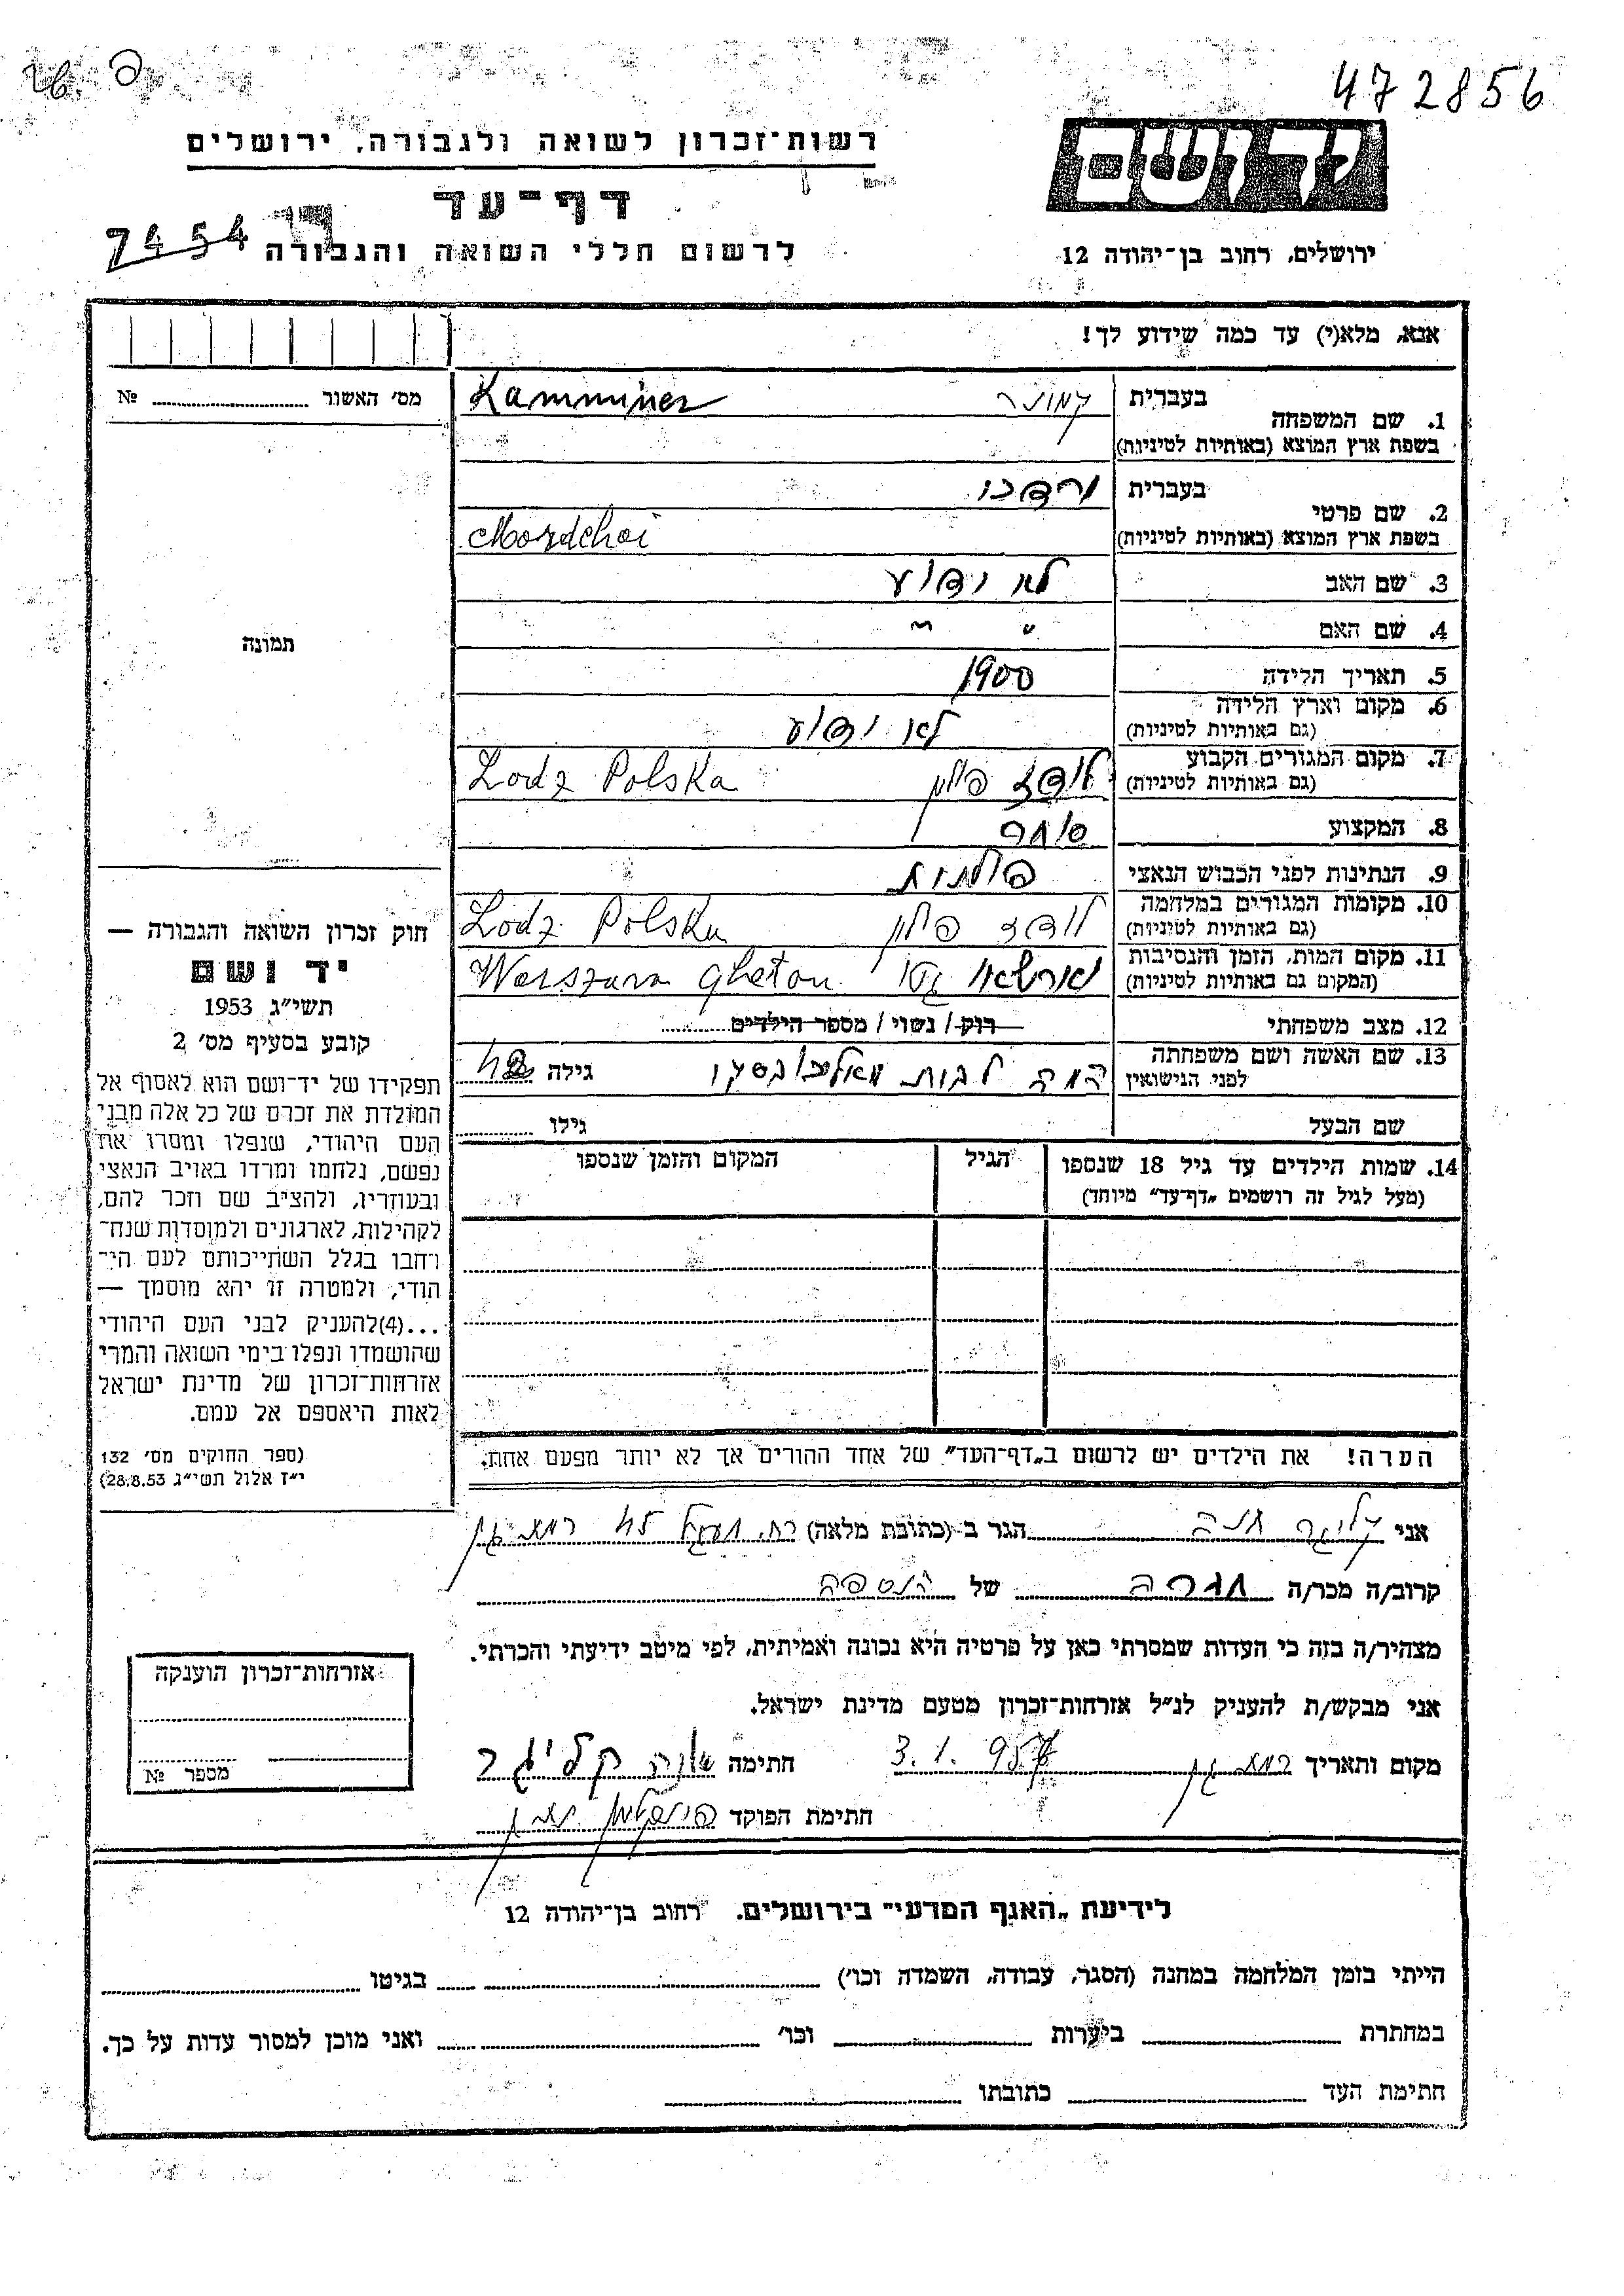 472856
יד ושם
רשות־זכרון לשואה ולגבורה, ירושלים
דף־עד
לרשום חללי השואה והגבורה
7454
ירושלים, רחוב בן־יהודה 12
אנא, מלא(י) עד כמה שידוע לך!
מס׳ האשור № 
1. שם המשפחה
בעברית קמינר Kamminer
בשפת ארץ המוצא (באותיות לטיניות)
2. שם פרטי
בעברית מרדכי
בשפת ארץ המוצא (באותיות לטיניות) Mordchai
3. שם האב לא ידוע
4. שם האם " "
5. תאריך הלידה 1900
6. מקום וארץ הלידה
(גם באותיות לטיניות) לא ידוע
7. מקום המגורים הקבוע
(גם באותיות לטיניות) לודז פולין Lodz Polska
8. המקצוע סוחר
9. הנתינות לפני הכבוש הנאצי פולנית
10. מקומות המגורים במלחמה
(גם באותיות לטיניות) לודז פולין Lodz Polska
11. מקום המות, הזמן והנסיבות
(המקום גם באותיות לטיניות) ווארשא גטו Warszawa gheton
12. מצב משפחתי רוק / נשוי / מספר הילדים
13. שם האשה ושם משפחתה
לפני הנישואין לבית גילה 42
שם הבעל גילו
14. שמות הילדים עד גיל 18 שנספו
(מעל לגיל זה רושמים „דף־עד״ מיוחד)
הגיל
המקום והזמן שנספו
הערה! את הילדים יש לרשום ב„דף־העד״ של אחד ההורים אך לא יותר מפעם אחת.
תמונה
חוק זכרון השואה והגבורה —
יד ושם
תשי״ג 1953
קובע בסעיף מס׳ 2
תפקידו של יד־ושם הוא לאסוף אל
המולדת את זכרם של כל אלה מבני
העם היהודי, שנפלו ומסרו את
נפשם, נלחמו ומרדו באויב הנאצי
ובעוזריו, ולהציב שם וזכר להם,
לקהילות, לארגונים ולמוסדות שנח־
רחבו בגלל השתייכותם לעם הי־
הודי, ולמטרה זו יהא מוסמך —
...(4)להעניק לבני העם היהודי
שהושמדו ונפלו בימי השואה והמרי
אזרחות־זכרון של מדינת ישראל
לאות היאספם אל עמם.
(ספר החוקים מס׳ 132
י״ז אלול תשי״ג 28.8.53)
אני קליגר חנה הגר ב־(כתובת מלאה) רח. 45 רמת גן
קרוב/ה מכר/ה חברה של הנספה
מצהיר/ה בזה כי העדות שמסרתי כאן על פרטיה היא נכונה ואמיתית, לפי מיטב ידיעתי והכרתי.
אני מבקש/ת להעניק לנ״ל אזרחות־זכרון מטעם מדינת ישראל.
מקום ותאריך רמת גן 3.1.957 חתימה חנה קליגר
חתימת הפוקד
אזרחות־זכרון הוענקה
מספר №
לידיעת „האגף המדעי״ בירושלים. רחוב בן־יהודה 12
הייתי בזמן המלחמה במחנה (הסגר, עבודה, השמדה וכו׳) בגיטו
במחתרת ביערות וכו׳ ואני מוכן למסור עדות על כך.
חתימת העד כתובתו